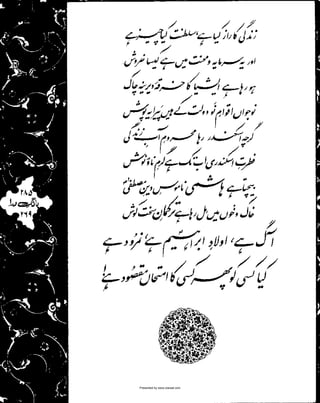 زندگی کا راز کیا ہے، سلطنت کیا چیز ہے
اور یہ سرمایہ و محنت میں ہے کیسا خروش
ہو رہا ہے ایشیا کا خرقۂ دیرینہ چاک
نوجواں اقوامِ نو دولت کے ہیں پیرایہ پوش
گرچہ اسکندر رہا محرومِ آبِ زندگی
فطرتِ اسکندری اب تک ہے گرمِ ناؤ نوش
بیچتا ہے ہاشمی ناموسِ دینِ مصطفیٰ
خاک و خوں میں مل رہا ہے ترکمانِ سخت کوش
آگ ہے، اولادِ ابراہیم ہے، نمرود ہے
کیا کسی کو پھر کسی کا امتحاں مقصود ہے!
۲۸۵
بانگِ درا
۲۶۹
Presented by www.iqbalat.com